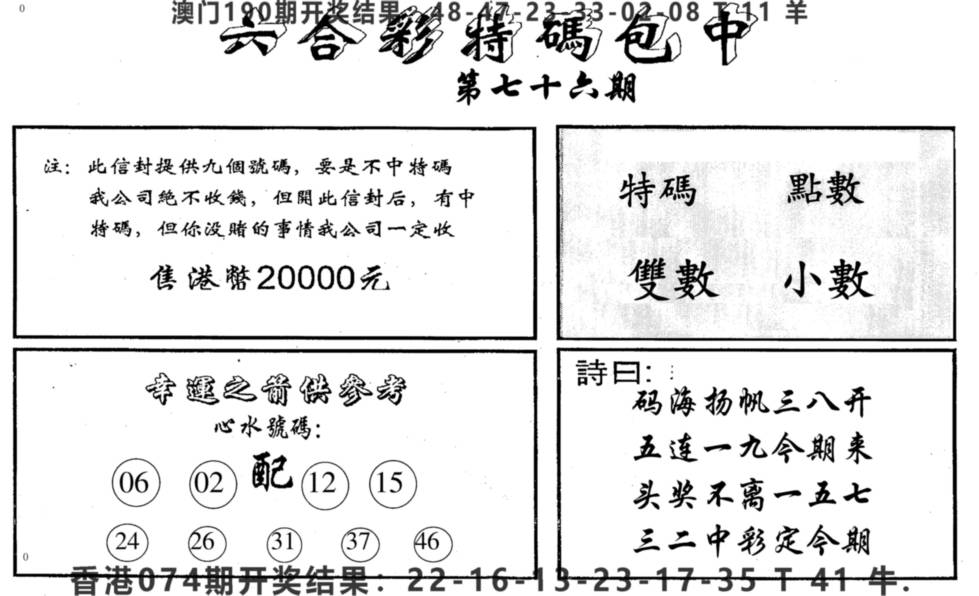 澳门190期开奖结果：48-47-23-33-02-08 T 11 羊
六合彩特碼包中
第七十六期
注：此信封提供九個號碼，要是不中特碼
我公司絕不收錢，但開此信封后，有中
特碼，但你没賭的事情我公司一定收
售港幣20000元
特碼 點數
雙數 小數
幸運之前供參考
心水號碼：
06 02 配 12 15
24 26 31 37 46
詩曰：
码海扬帆三八开
五连一九今期来
头奖不离一五七
三二中彩定今期
香港074期开奖结果：22-16-13-23-17-35 T 41 牛.
0
0